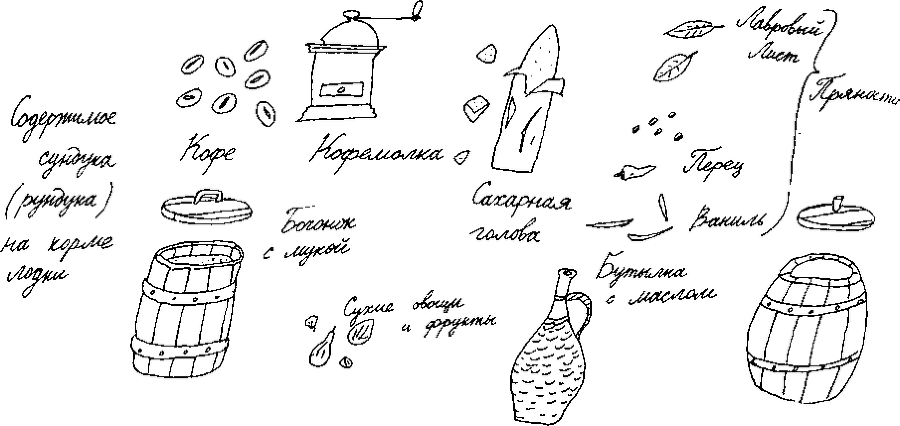 Содержимое
сундука
(рундука)
на корме
лодки
Кофе
Кофемолка
Сахарная
голова
Лавровый
Лист
Перец
Ваниль
Пряности
Бочонок
с мукой
Сухие овощи
и фрукты
Бутылка
с маслом